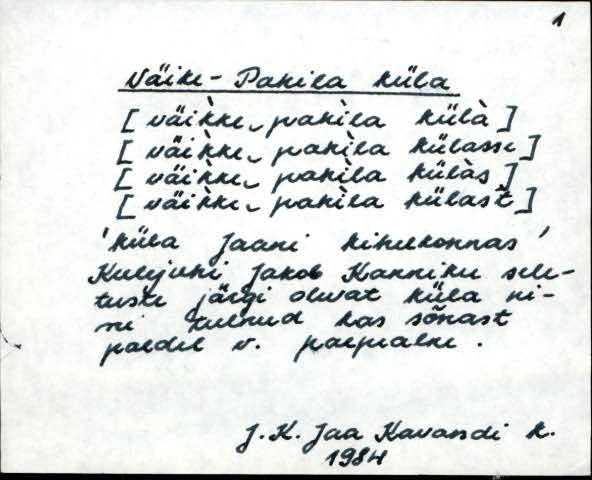 1
Väike-Pahila küla
[väi̬k̀ke‿pahìla külà]
[väìkke‿pahìla külasse]
[väìkke‿pahìla külàs]
[väìkke‿pahìla külast]
'küla Jaani kihelkonnas'
Kulejuhi Jakob Kanniku sele-
tuste järgi olevat küla ni-
mi tulnud kas sõnast
paedel v. paepealne.
J.K. Jaa Kavandi k.
1984